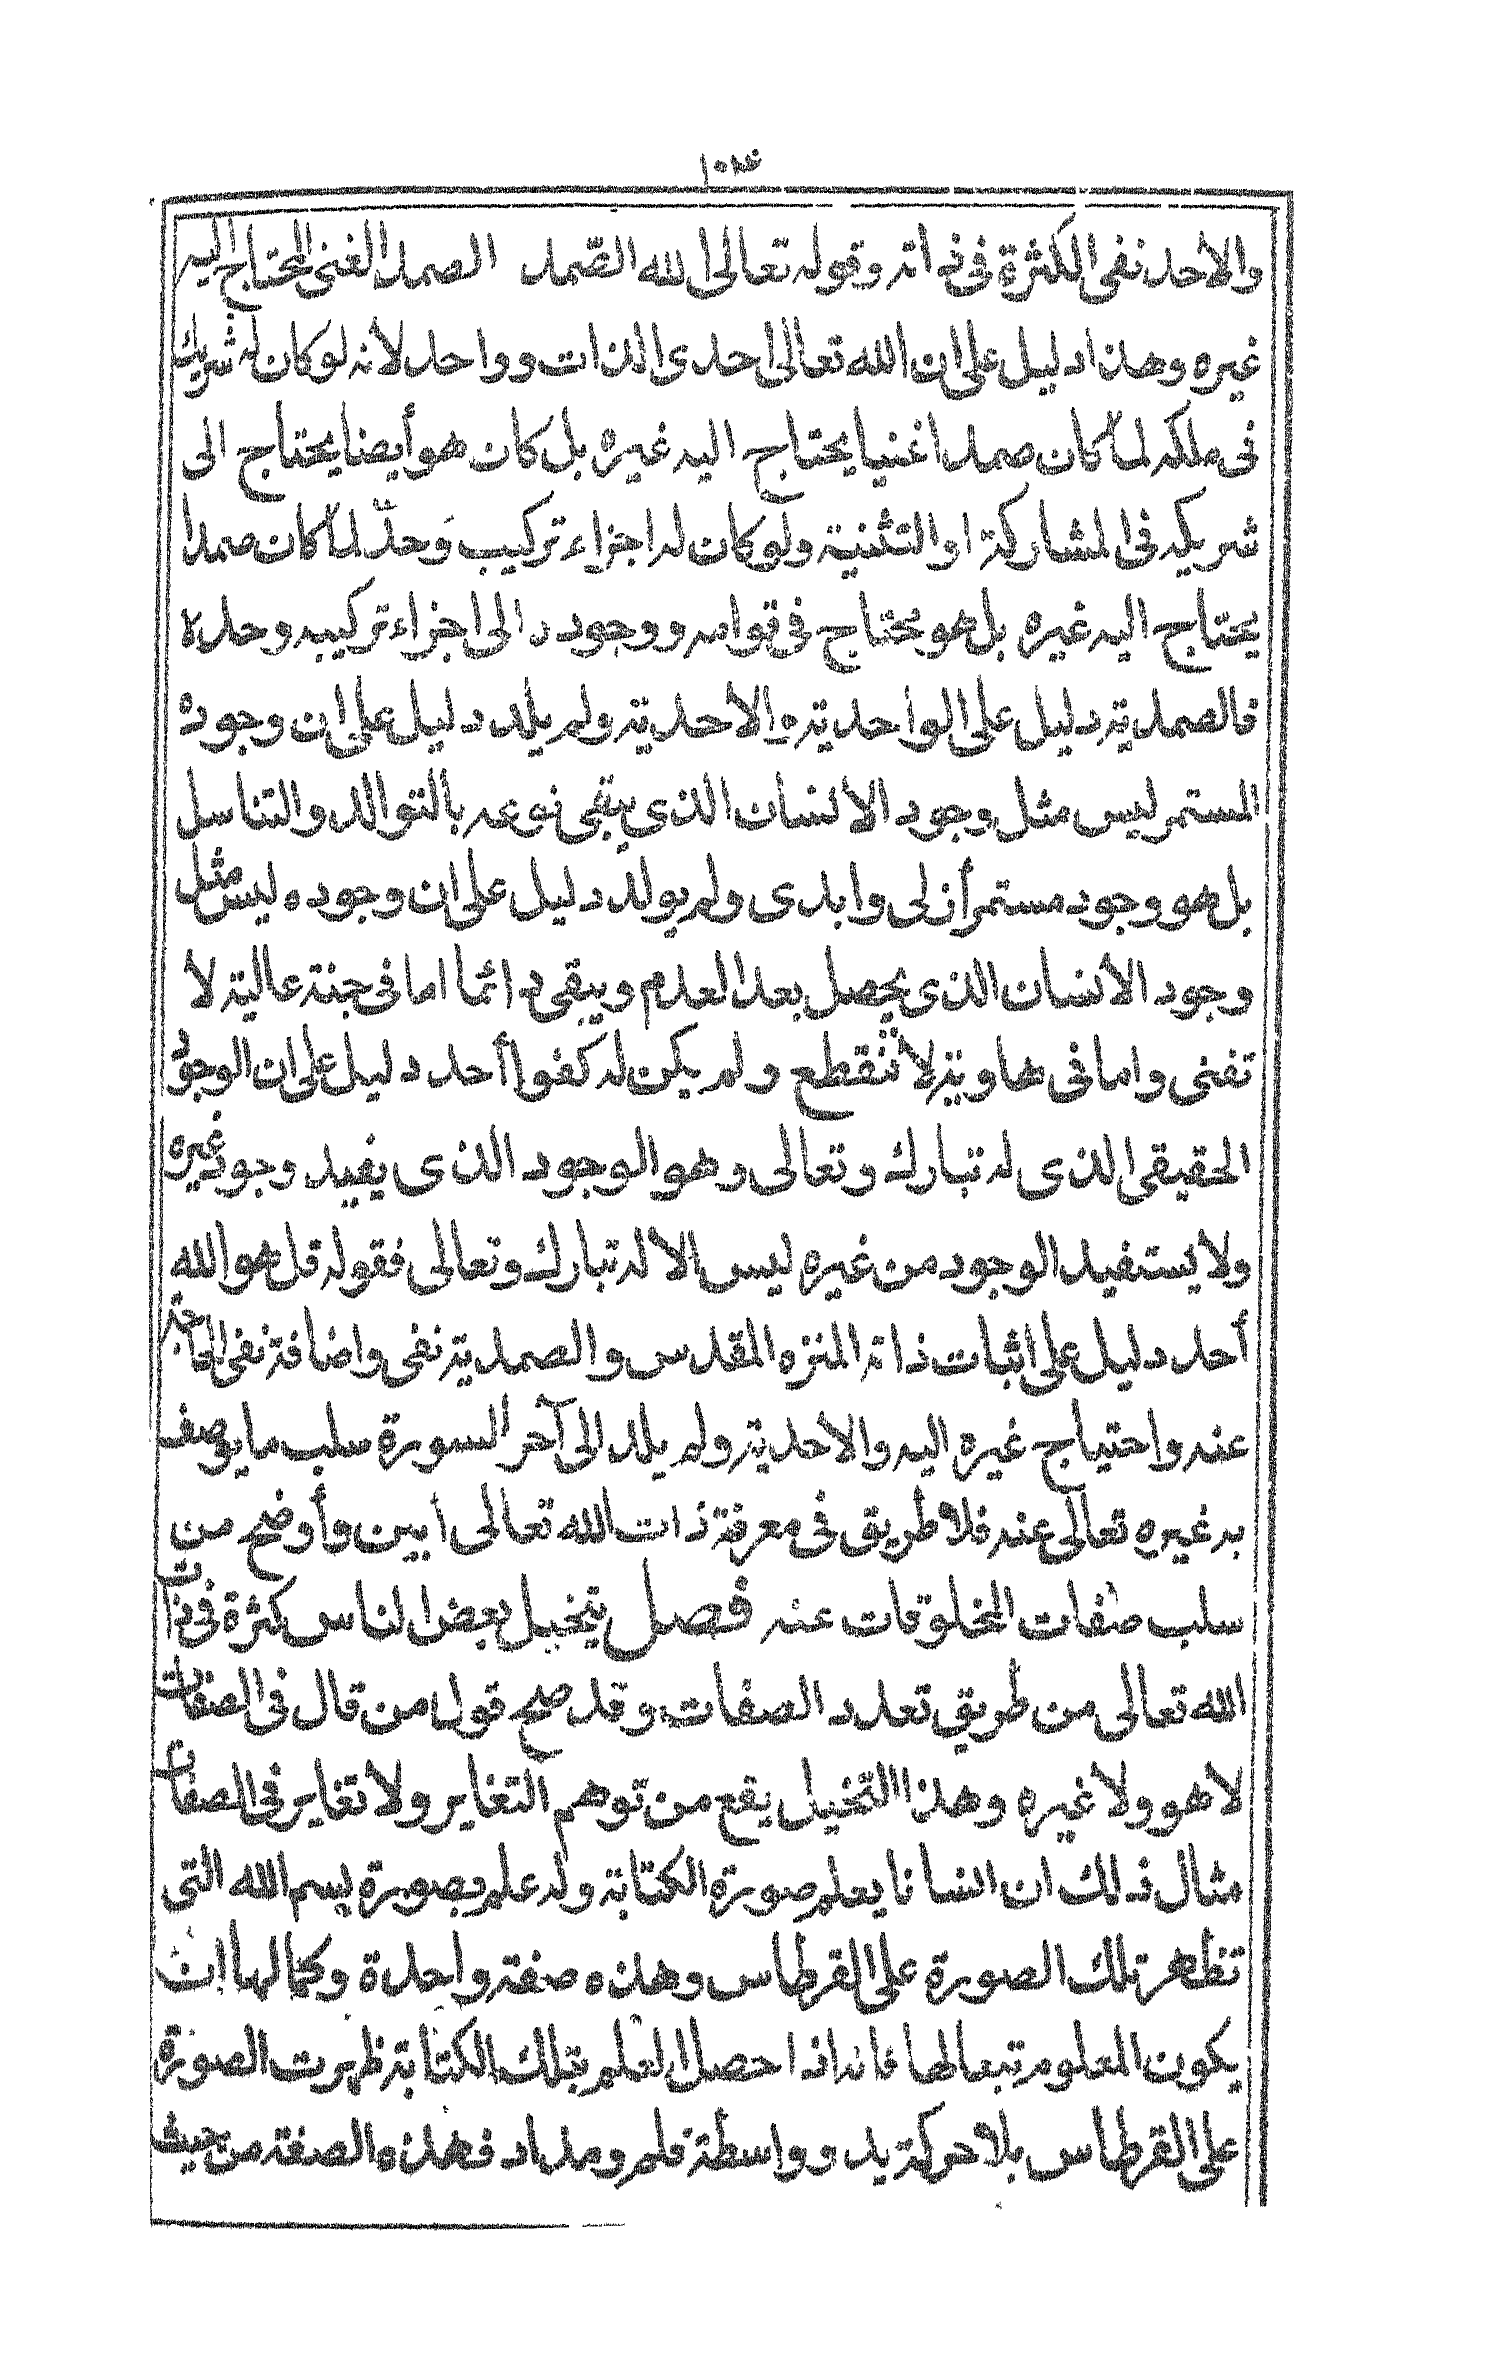 والاحد نفى الكثرة فى ذاته وقوله تعالى الله الصّمد الصمد الغنى المحتاج اليه
غيره وهذا دليل على ان الله تعالى احدى الذات وواحد لأنه لو كان له شريك
فى ملكه لمّا كان صمدا غنيا يحتاج اليه غيره بل كان هو أيضا يحتاج الى
شريكه فى المشاركة او التثنية ولو كان له اجزاء تركيب وَحدّ لمّا كان صمدا
يحتاج اليه غيره بل هو يحتاج فى قوامه ووجوده الى اجزاء تركيبه وحده
فالصمدية دليل على الواحدية والاحدية ولم يلد دليل على ان وجوده
المستمر ليس مثل وجود الانسان الذى يبقى نوعه بالتوالد والتناسل
بل هو وجود مستمر أزلى وابدى ولم يولد دليل على ان وجوده ليس مثل
وجود الأنسان الذى يحصل بعد العدم ويبقى دائما اما فى جنة عالية لا
تفنى واما فى هاوية لا تنقطع ولم يكن له كفوا أحد دليل على ان الوجود
الحقيقى الذى له تبارك وتعالى وهو الوجود الذى يفيد وجود غيره
ولا يستفيد الوجود من غيره ليس الا له تبارك وتعالى فقوله قل هو الله
أحد دليل على اثبات ذاته المنزه المقدس والصمدية نفى واضافة نفى الحاجة
عنه واحتياج غيره اليه والاحدية ولم يلد الى آخر السورة سلب ما يوصف
به غيره تعالى عنه فلا طريق فى معرفة ذات الله تعالى أبين وأوضح من
سلب صفات المخلوقات عنه فصل يتخيل بعض الناس كثرة فى ذات
الله تعالى من طريق تعدد الصفات وقد صح قول من قال فى الصفات
لا هو ولا غيره وهذا التخيل يقع من توهم التغاير ولا تغاير فى الصفات
مثال ذلك ان انسانا يعلم صورة الكتابة وله علم بصورة بسم الله التى
تظهر تلك الصورة على القرطاس وهذه صفة واحدة وكمالها ان
يكون المعلوم تبعا لها فانه اذا حصل العلم بتلك الكتابة ظهرت الصورة
على القرطاس بلا حركة يد وواسطة قلم ومداد فهذه الصفة من حيث